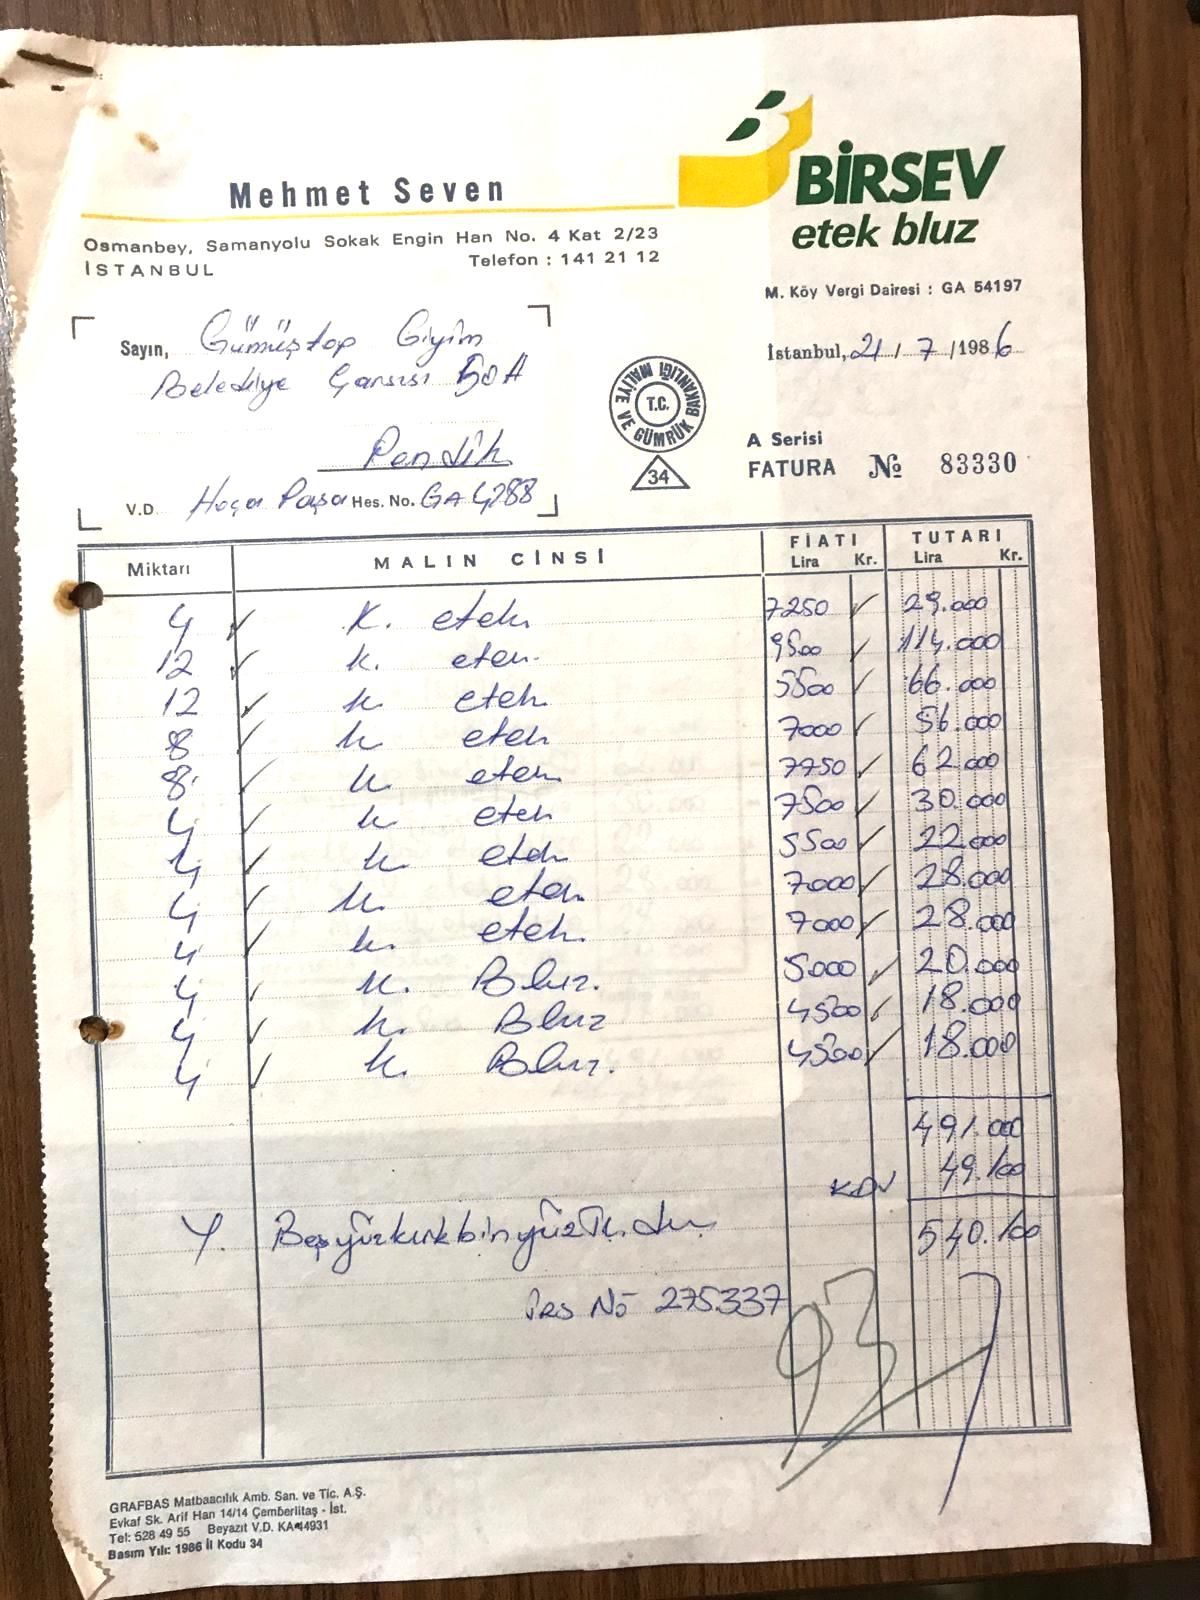 BİRSEV
etek bluz
Mehmet Seven
Osmanbey, Samanyolu Sokak Engin Han No. 4 Kat 2/23
İSTANBUL Telefon : 141 21 12
M. Köy Vergi Dairesi : GA 54197
Sayın, Gümüştop Giyim
Belediye Çarşısı 50A
Pendik
V.D. Hoca Paşa Hes. No. GA 4288
İstanbul, 21 / 7 /1986
T.C. MALİYE VE GÜMRÜK BAKANLIĞI
34
A Serisi
FATURA № 83330
Miktarı MALIN CİNSİ FİATI Lira Kr. TUTARI Lira Kr.
4 K. etek 7250 29.000
12 k. etek 9500 114.000
12 k etek 5500 66.000
8 k etek 7000 56.000
8 k. etek 7750 62.000
4 k etek 7500 30.000
4 k. etek 5500 22.000
4 k. etek 7000 28.000
4 k. etek 7000 28.000
4 k. Bluz. 5000 20.000
4 k. Bluz 4500 18.000
4 k. Bluz. 4500 18.000
491.000
KDV 49.100
Y. Beşyüzkırkbinyüz TL. dır 540.100
İrs No 275.337
93
GRAFBAS Matbaacılık Amb. San. ve Tic. A.Ş.
Evkaf Sk. Arif Han 14/14 Çemberlitaş - İst.
Tel: 528 49 55 Beyazıt V.D. KA 14931
Basım Yılı: 1986 İl Kodu 34